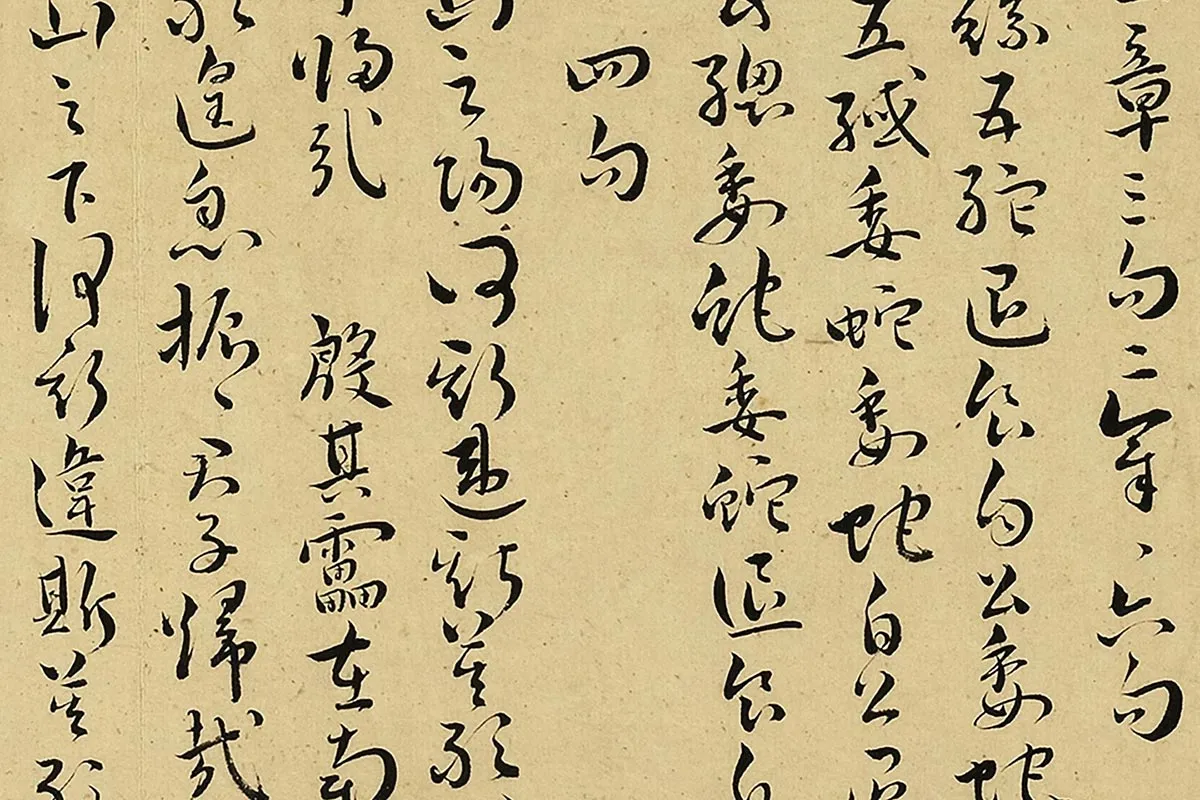 章三句二章〻六句
絲五紽退食自公委蛇
五緎委蛇委蛇自公退
五緫委蛇委蛇退食自
四句
山之陽何斯違斯莫敢
歸哉　殷其靁在南
敢遑息振〻君子歸哉
山之下何斯違斯莫敢